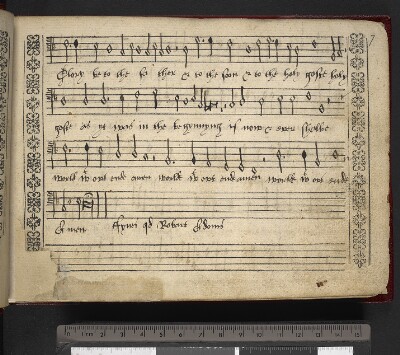 Glory be to the fa ther & to the soon & to the holy goste holy
gost as yt was in the begynnyng is now & ever shalbe
world wt out ende amen world wt out ende amen world wt out ende
A men ffynis qd Robert